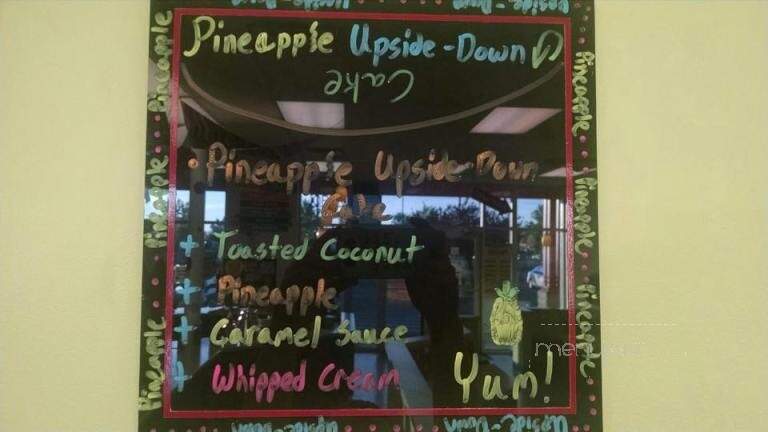 Upside-Down Upside-Down
Pineapple Upside-Down
Cake
Pineapple Upside-Down
Cake
+ Toasted Coconut
+ Pineapple
+ Caramel Sauce
+ Whipped Cream
Yum!
Pineapple
Pineapple
Pineapple
Pineapple
Pineapple
Pineapple
Upside-Down Upside-Down